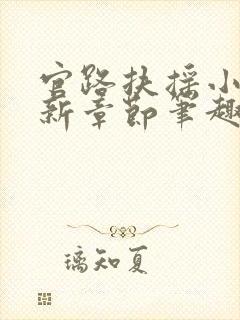 官路扶摇小
新章节笔趣
璃知夏